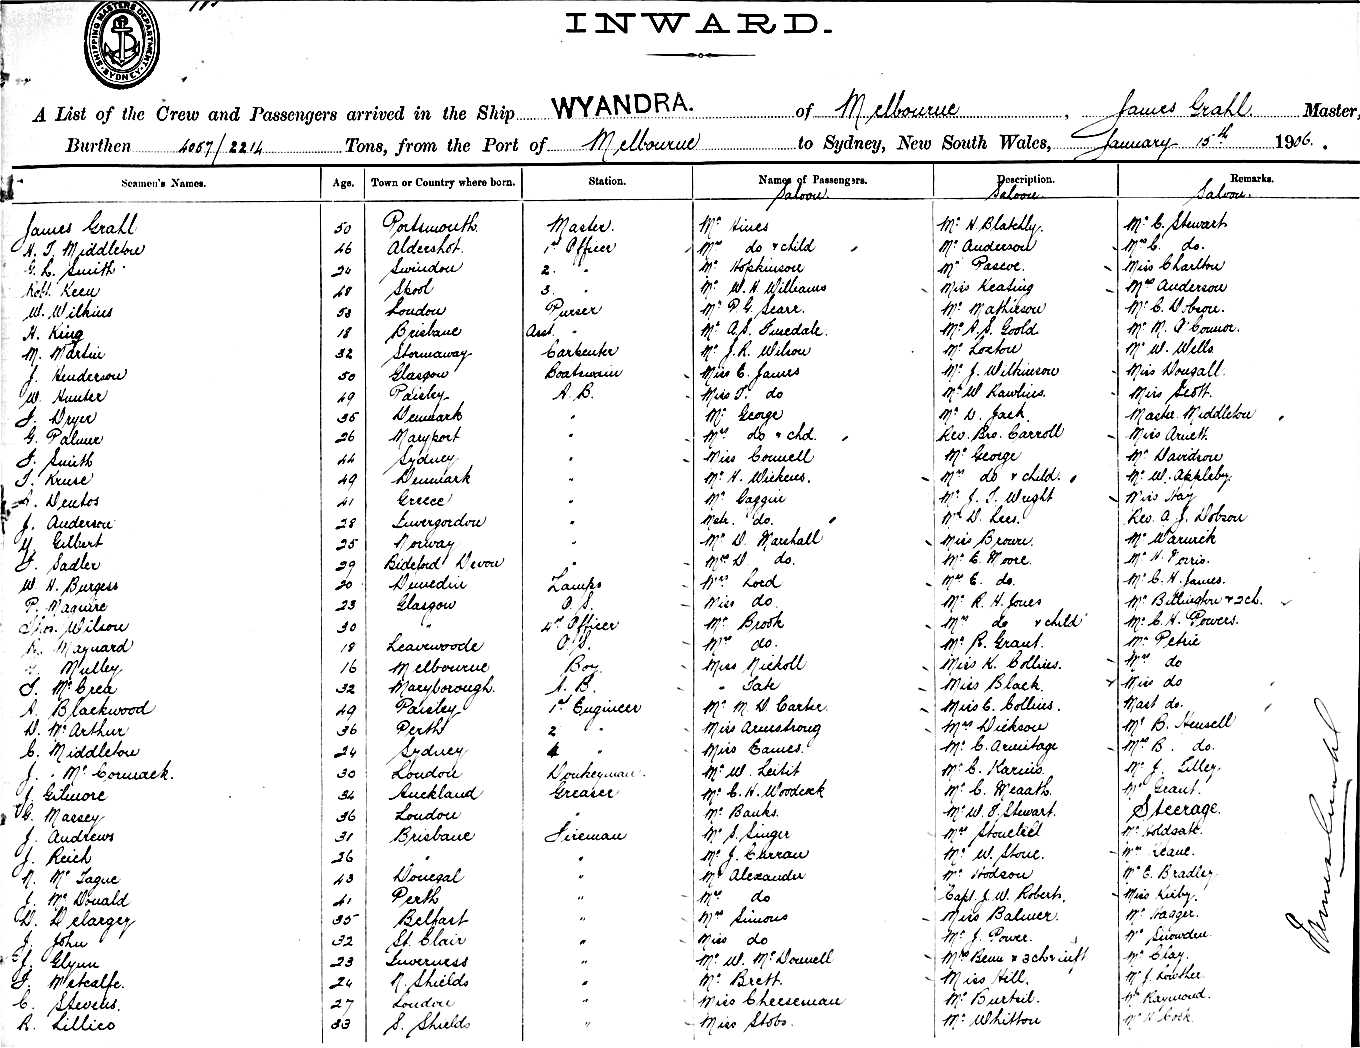 SHIPPING MASTERS DEPARTMENT. SYDNEY.
INWARD.
A List of the Crew and Passengers arrived in the Ship WYANDRA. of Melbourne, James Grahl. Master,
Burthen 4057/2214 Tons, from the Port of Melbourne to Sydney, New South Wales, January 15th 1906.
Seamen's Names. Age. Town or Country where born. Station. Names of Passengers. Description. Remarks.
Saloon. Saloon Saloon.
James Grahl 50 Portsmouth. Master. Mr Hines Mr H Blatchly. Mr C. Stewart
H. T. Middleton 46 Aldershot. 1st Officer Mrs do & child Mr Anderson Mrs C. do.
G. L. Smith 24 Swindon 2. " Mr Hopkinson Mr Pascoe. Miss Charlton
Robt. Keen 48 3. " Mr W. H Williams Miss Keating Mrs Anderson
W. Wilkins 53 London Purser Mr P. G. Searr. Mr Mathieson Mr C. Dobson.
H. King 18 Brisbane Asst. " Mr A. S. Tweedale. Mr A. S. Goold Mr M. O'Connor.
M. Martin 32 Stornaway Carpenter Mr J. R. Wilson Mr Loxton Mr W. Wells
J. Henderson 50 Glasgow Boatswain Miss E. James Mr J. Wilkinson Miss Dougall.
W. Hunter 49 Paisley. A. B. Miss T. do Mr W Rawlins. Miss Scott.
F. Dryer 35 Denmark " Mr George Mr D. Jack Master Middleton
G. Palmer 26 Maryport " Mrs do & chd. Rev. Bro. Carroll Miss Arnett.
F. Smith 44 Sydney " Miss Connell Mr George Mr Davidson
T. Kruse 49 Denmark " Mr H. Wickens. Mrs do & child. Mr W. Appleby
Dentos 41 Greece " Mr Gaggin Mr J. T. Wright Miss Hay
J. Anderson 28 Invergordon " do. Mr D. Lees. Rev. A. J. Dobson
Gilbert 25 Norway " Mr D. Marshall Miss Brown. Mr Warwick
F. Sadler 29 Bideford Devon " Mrs D do. Mr E. Moore. Mr H.
W. H. Burgess 20 Dunedin Lamps Mrs Lord Mrs E. do. Mr C. H. James.
P. Maguire 23 Glasgow O. S. Miss do. Mr R. H. Jones Mr Billington & 2ch.
Thos. Wilson 30 " 4th Officer Mr Brook Mrs do & child Mr C. H. Powers.
R. Maynard 18 O. S. Mrs do. Mr R. Grant. Mr Petrie
Mulley 16 Melbourne Boy. Miss Nicholl Miss K. Collins. Mrs do
T. McCrea 32 Maryborough. A. B. " Tate Miss Black. Miss do
A. Blackwood 49 Paisley 1st Engineer Mr M D Carter. Miss E. Collins. Mast do.
D. McArthur 36 Perth 2 " Miss Armstrong Mrs Dickson Mr B. Hensell
C. Middleton 24 Sydney 4 " Miss Eames. Mr C. Armitage Mrs B. do.
J. McCormack. 30 London Donkeyman. Mr W. Mr C. Karins. Mr J. Lilley.
J. Gilmore 34 Auckland Greaser Mr C. H. Woodcock Mr C. Meaath. Mr Grant.
G. Massey 36 London " Mr Banks. Mr W. F. Stewart. Steerage.
J. Andrews 31 Brisbane Fireman Mr S. Singer Mrs Mr Holdsate.
J. Reich 26 " " Mr J. Curran Mr W. Stone. Mrs Keane.
N. McTague 43 Donegal " Mr Alexander Mr Hodson Mr E. Bradley
McDonald 41 Perth " Mrs do Capt. J. W. Roberts. Miss Kirby.
D. Delargey 35 Belfast " Mrs Simons Miss Balmer. Mr
J. John 32 St. Clair " Miss do Mr J. Power. Mr Snowden
J. Glynn 23 Inverness " Mr W. McDonnell Mrs Benn & 3ch & inft Mr Clay.
J. Metcalfe. 24 N. Shields " Mr Brett. Miss Hill. Mr J. Lowther
C. Stevens. 27 London " Miss Cheeseman Mr Mr Raymond.
R. Lillico 33 S. Shields " Miss Stobs. Mr Whitton Mr H Cook.
James Grahl